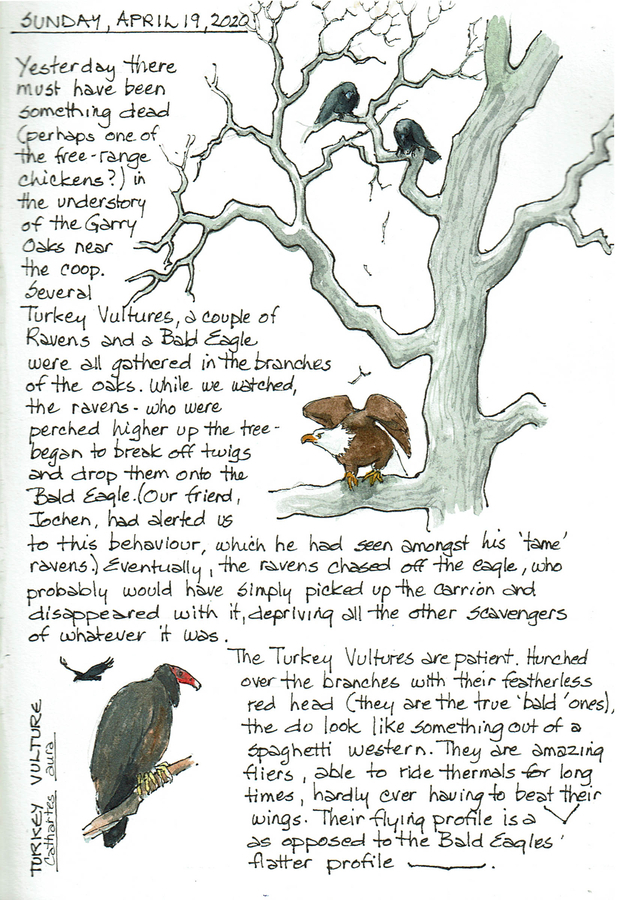 SUNDAY, APRIL 19, 2020
Yesterday there
must have been
something dead
(perhaps one of
the free-range
chickens?) in
the understory
of the Garry
Oaks near
the coop.
Several
Turkey Vultures, a couple of
Ravens and a Bald Eagle
were all gathered in the branches
of the oaks. While we watched,
the ravens - who were
perched higher up the tree -
began to break off twigs
and drop them onto the
Bald Eagle. (Our friend,
Jochen, had alerted us
to this behaviour, which he had seen amongst his 'tame'
ravens.) Eventually, the ravens chased off the eagle, who
probably would have simply picked up the carrion and
disappeared with it, depriving all the other scavengers
of whatever it was.
The Turkey Vultures are patient. Hunched
over the branches with their featherless
red head (they are the true 'bald' ones),
the do look like something out of a
spaghetti western. They are amazing
fliers, able to ride thermals for long
times, hardly ever having to beat their
wings. Their flying profile is a
as opposed to the Bald Eagles'
flatter profile .
TURKEY VULTURE
Cathartes aura